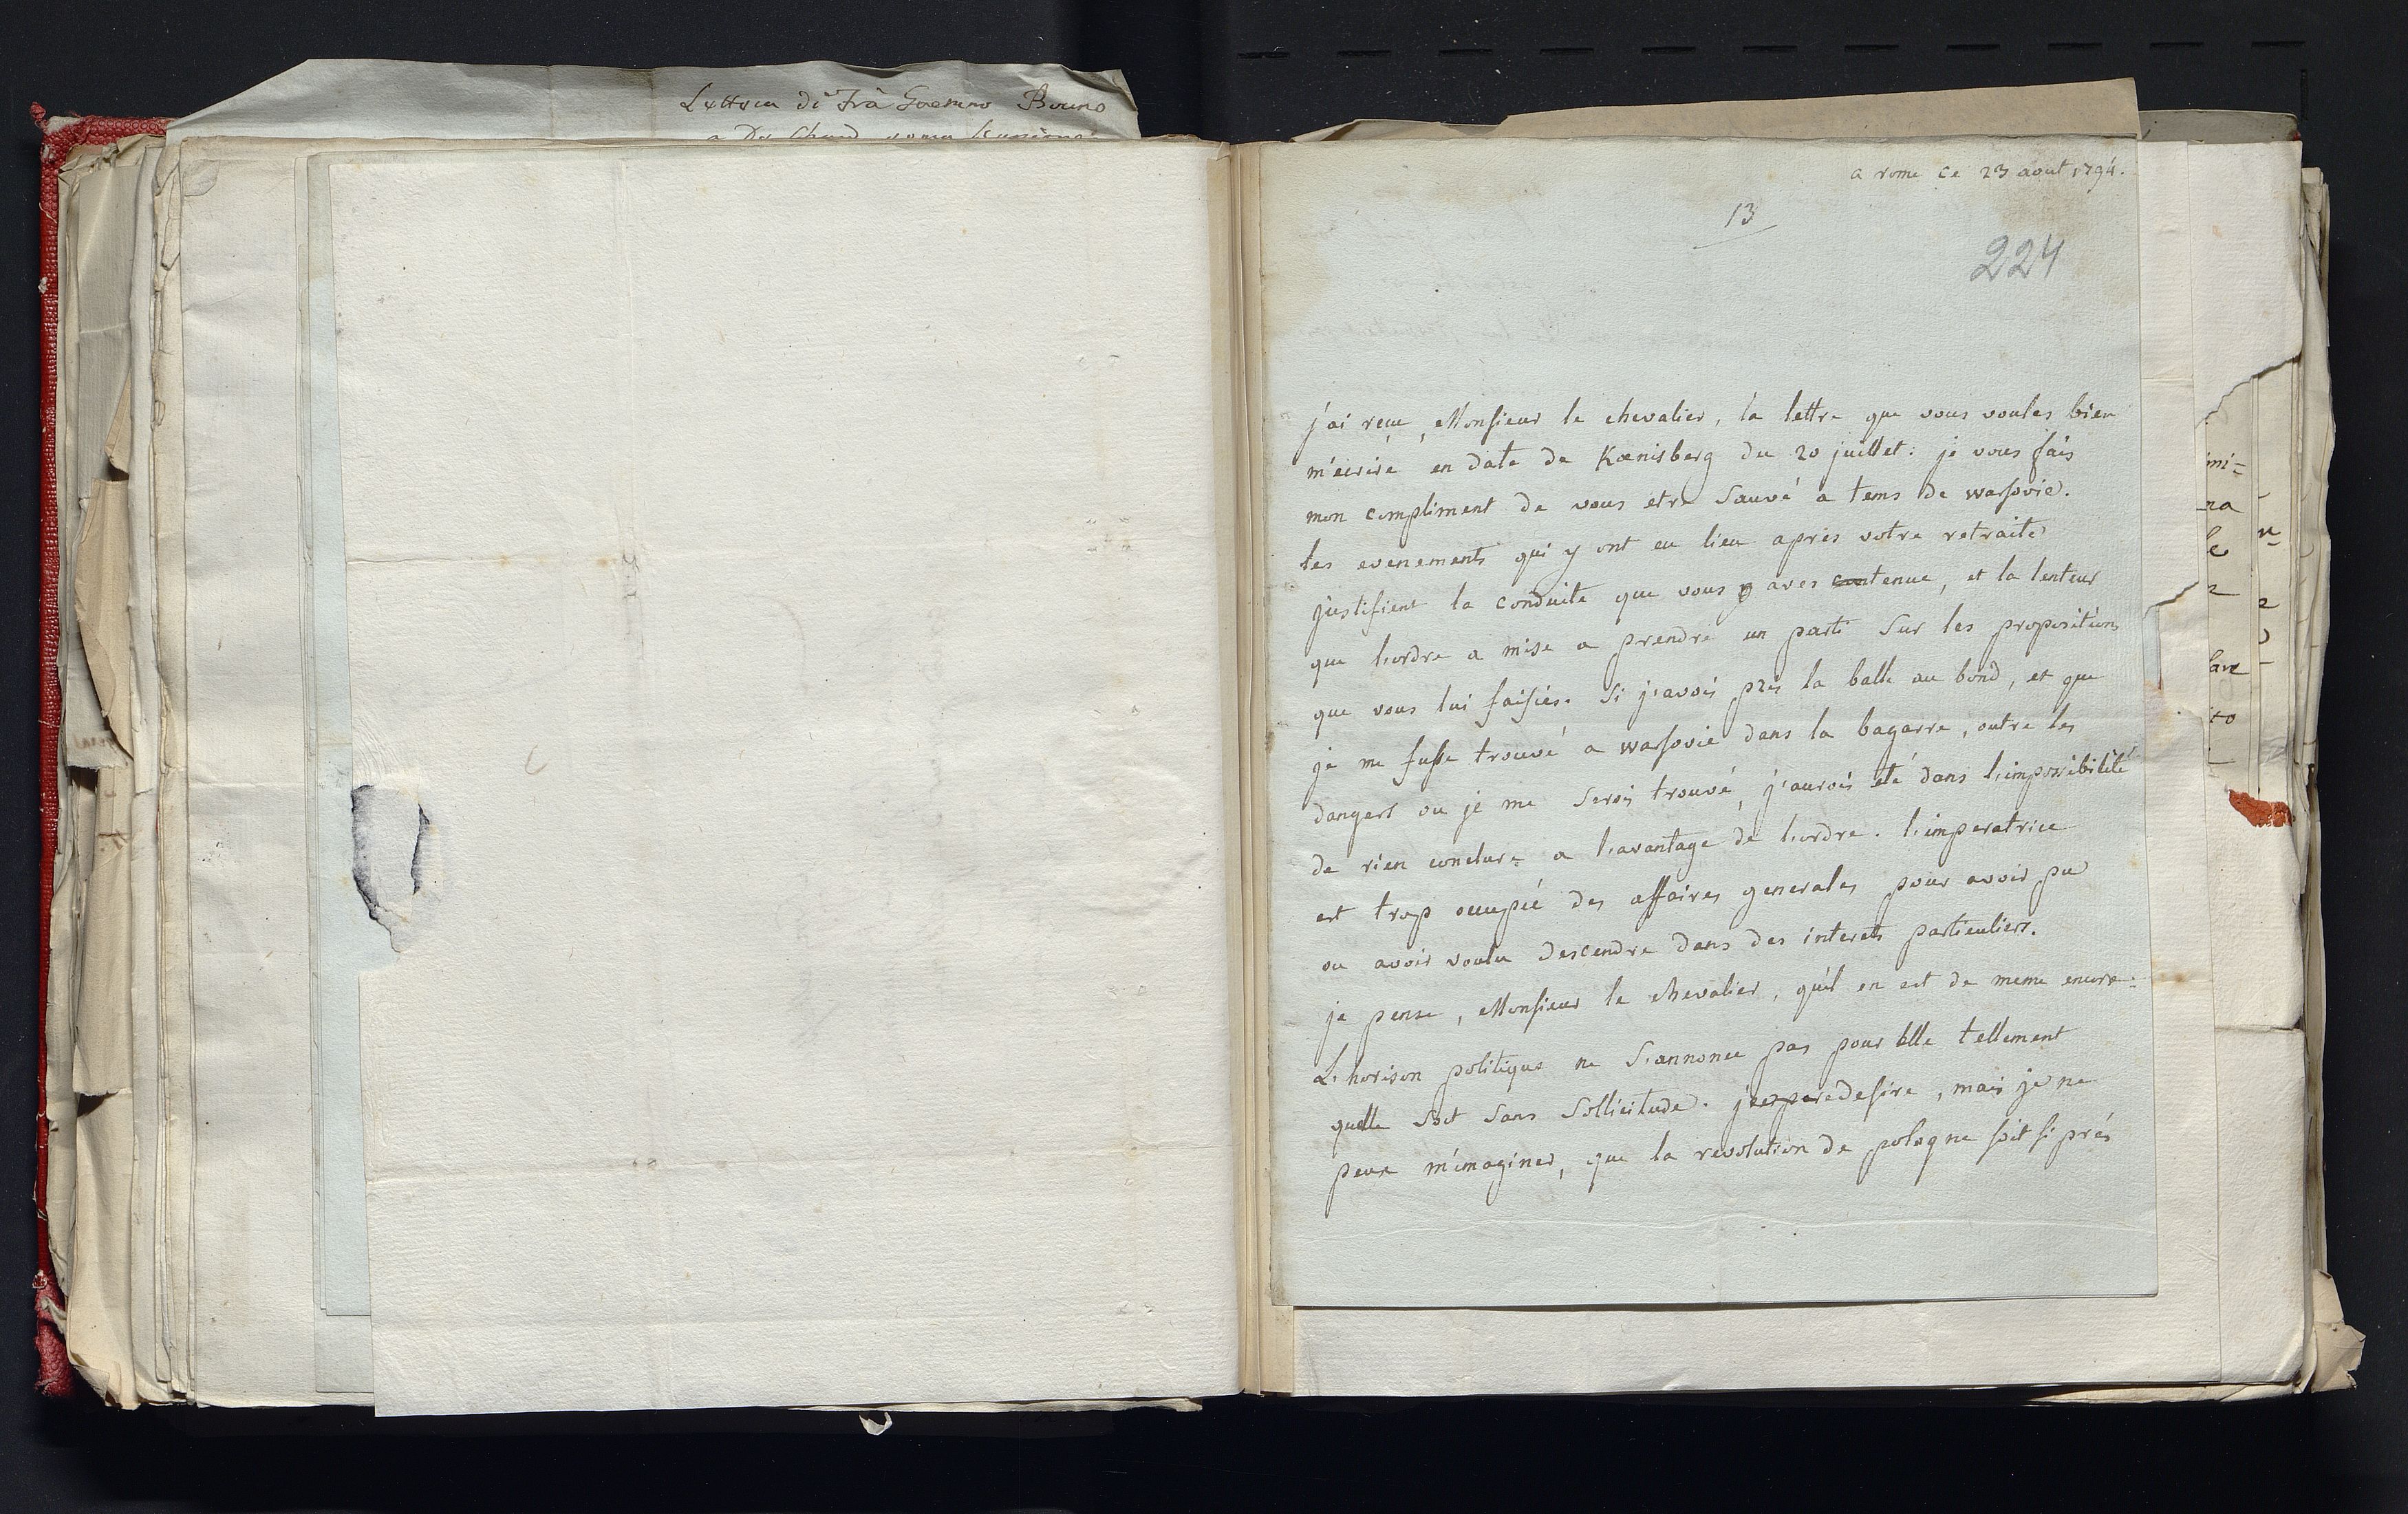 Lettera di Frà Gaetano Bruno
a rome ce 23 aout 1794.
13
224
j'ai reçue, Monsieur le chevalier, la lettre que vous voules bien
m'ecrire en date de Kœnisberg du 20 juillet: je vous fais
mon compliment de vous etre sauvé a tems de warsovie.
les evenements qui y ont eu lieu après votre retraite
justifient la conduite que vous y aves contenue, et la lenteur
que l'ordre a mise a prendre un parti sur les propositions
que vous lui faisies. si j'avois pris la balle au bond, et que
je me fusse trouvé a warsovie dans la bagarre, outre les
dangers ou je me serois trouvé, j'aurois eté dans l'impossibilité
de rien conclure a l'avantage de l'ordre. l'imperatrice
est trop occupée des affaires generales pour avoir pu
ou avoir voulu descendre dans des interets particuliers.
je pense, Monsieur le chevalier, qu'il en est de meme encore:
L'horison politique ne s'annonce pas pour elle tellement
quelle soit sans sollicitude. j'espere desire, mais je ne
peux m'imaginer, que la revolution de pologne soit si près